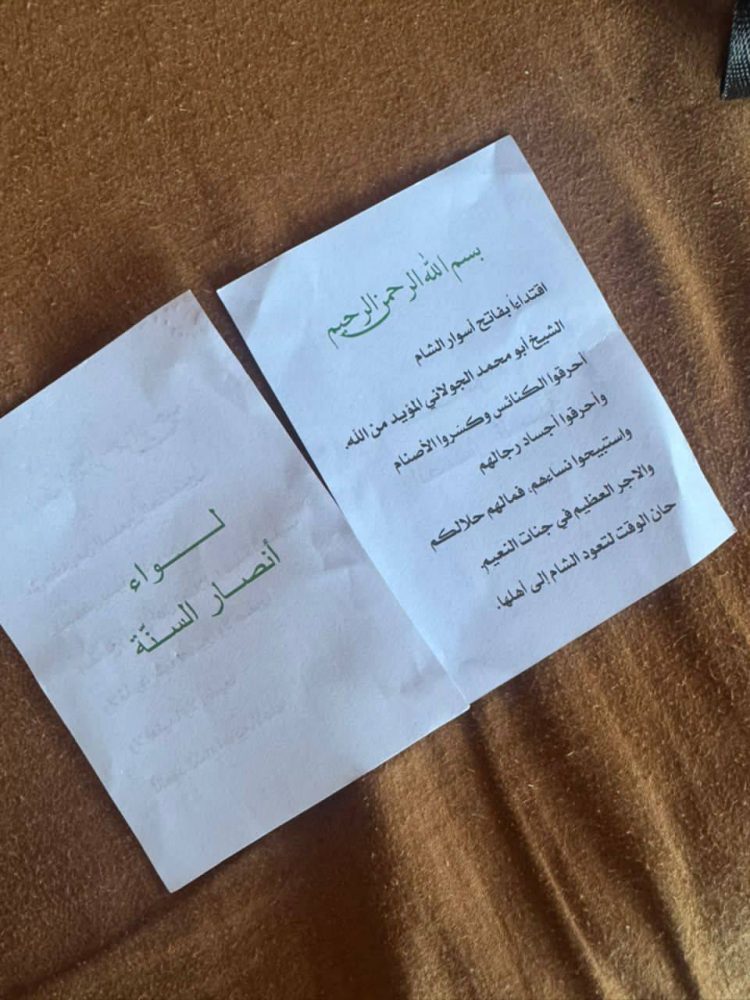 بسم الله الرحمن الرحيم
اقتداءاً بفاتح أسوار الشام
الشيخ أبو محمد الجولاني المؤيد من الله.
أحرقوا الكنائس وكسّروا الأصنام
وأحرقوا أجساد رجالهم
واستبيحوا نساءهم، فمالهم حلالكم
والاجر العظيم في جنات النعيم.
حان الوقت لتعود الشام إلى أهلها.
لـــواء
أنصار السنّة